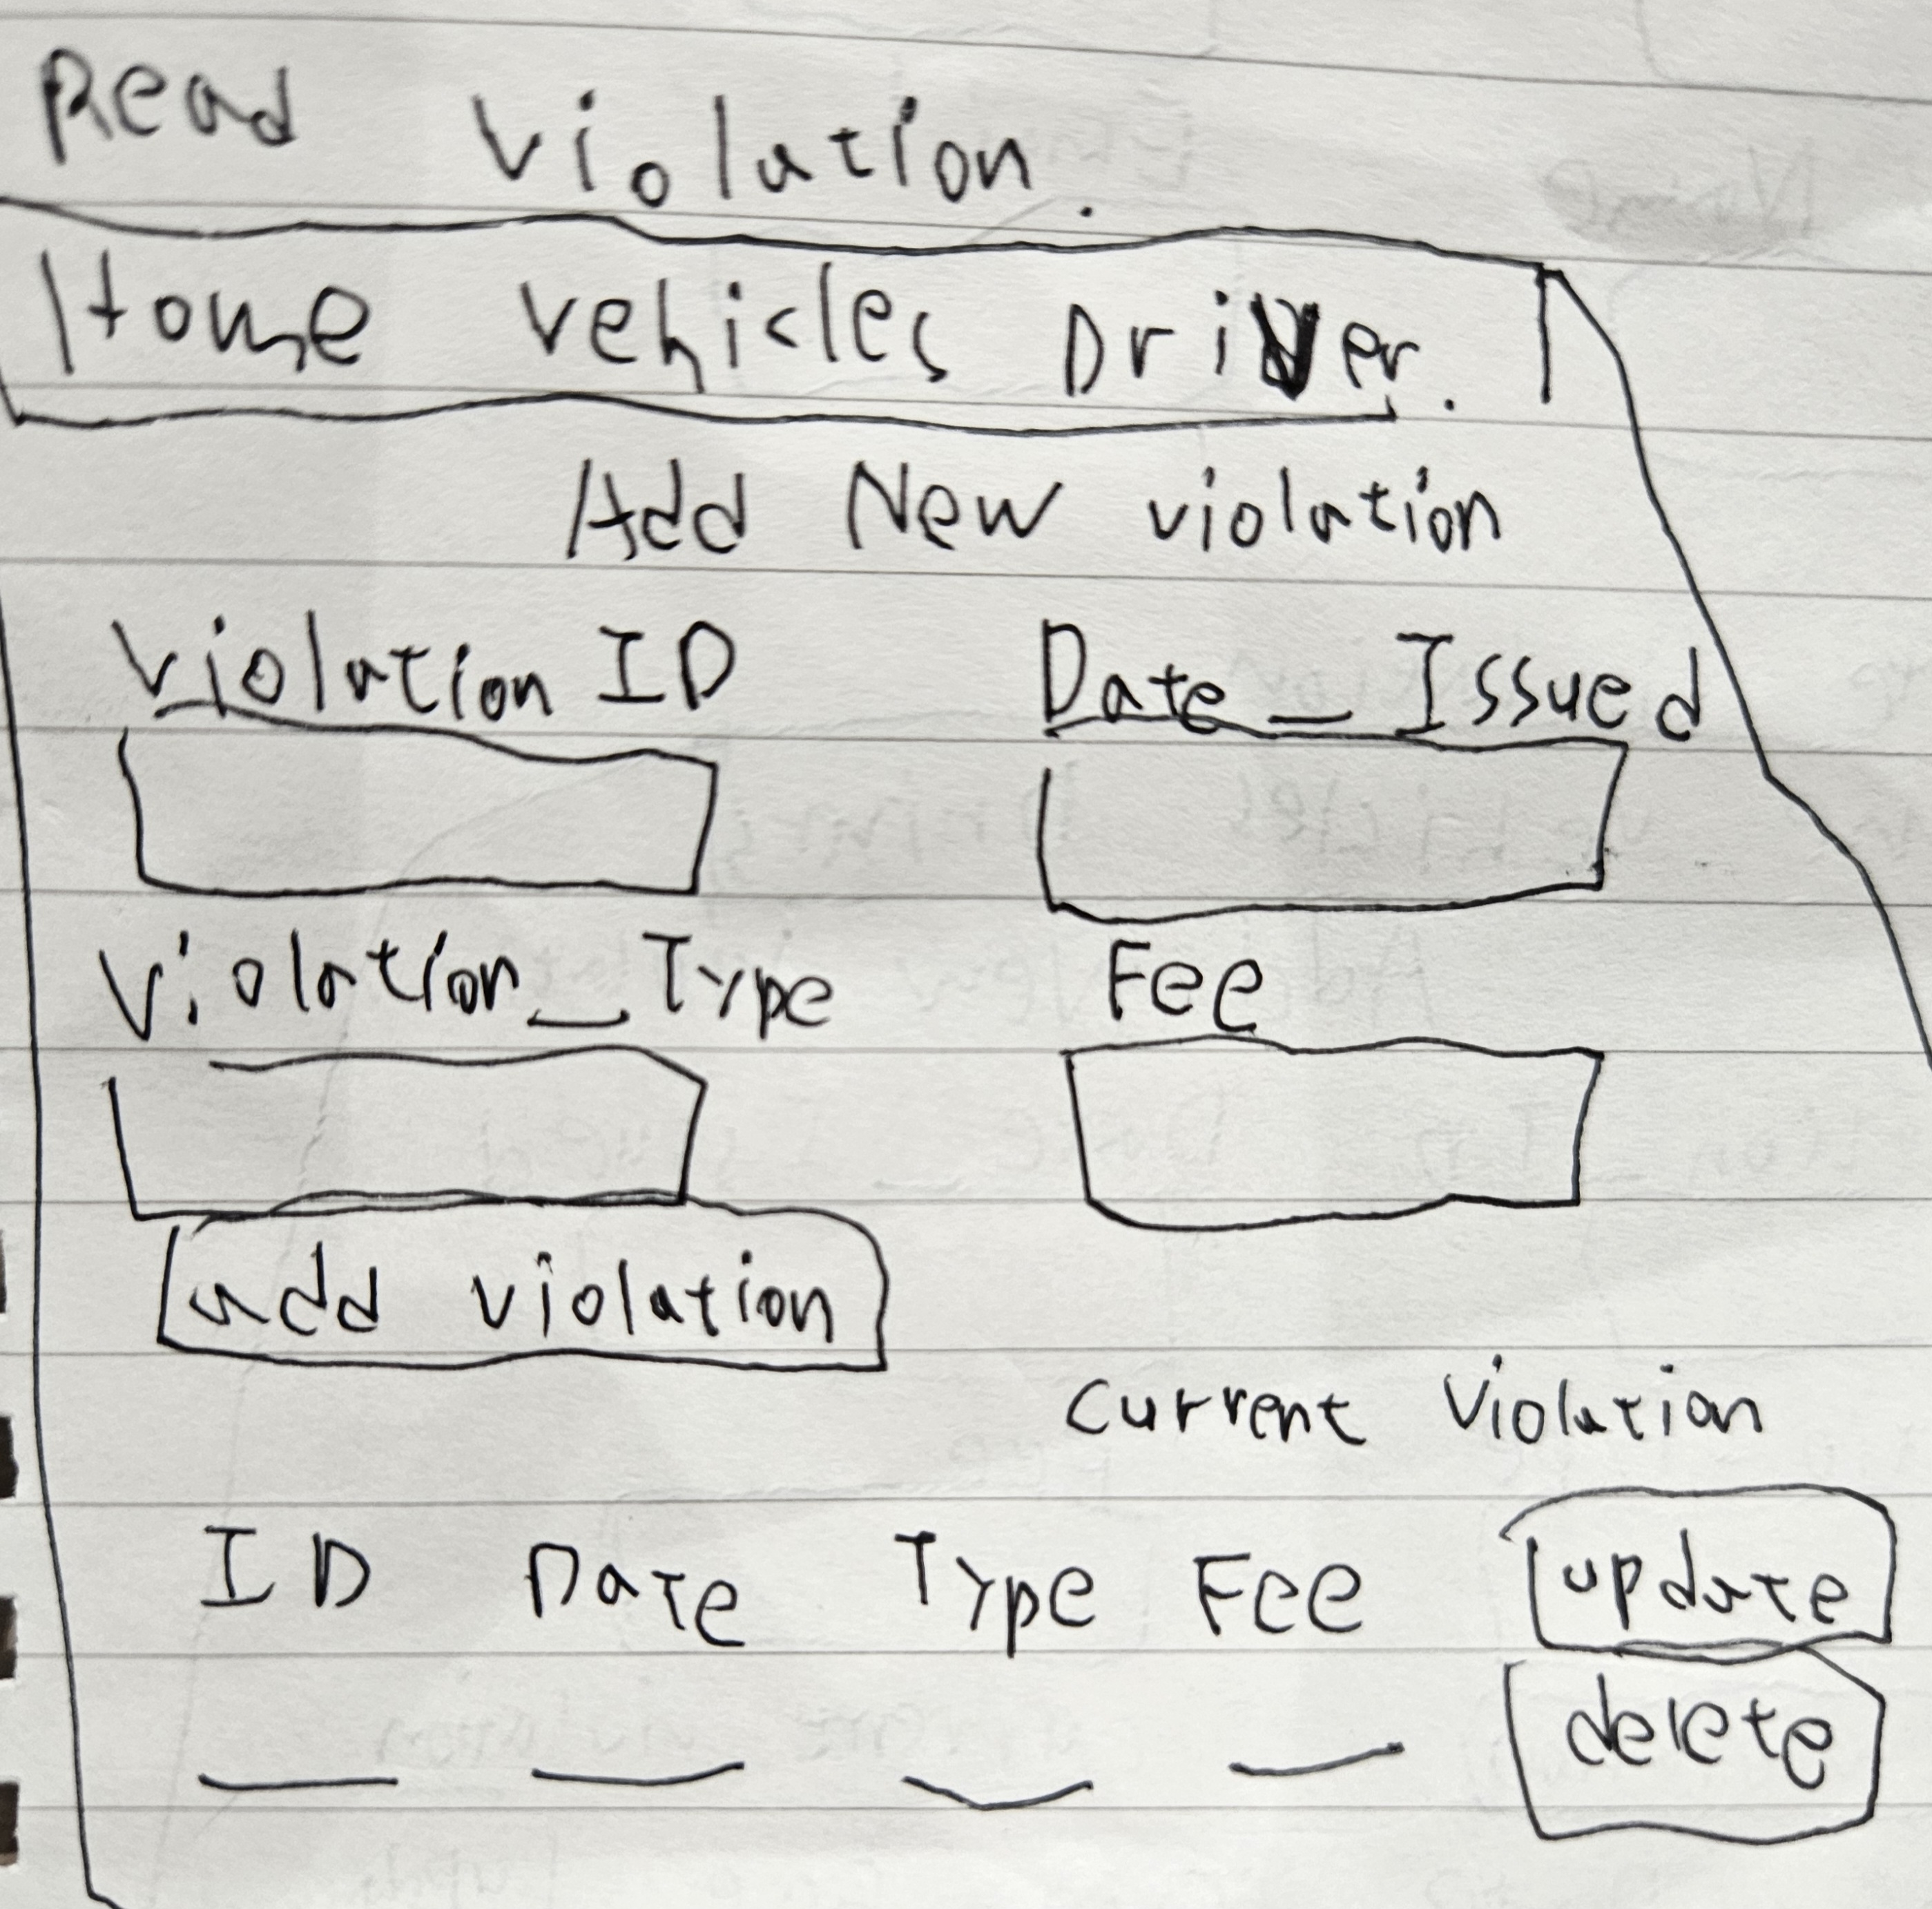 Read Violation.
Home Vehicles Driver.
Add New violation
Violation ID Date_Issued
Violation_Type Fee
add violation
Current Violation
ID Date Type Fee update
delete